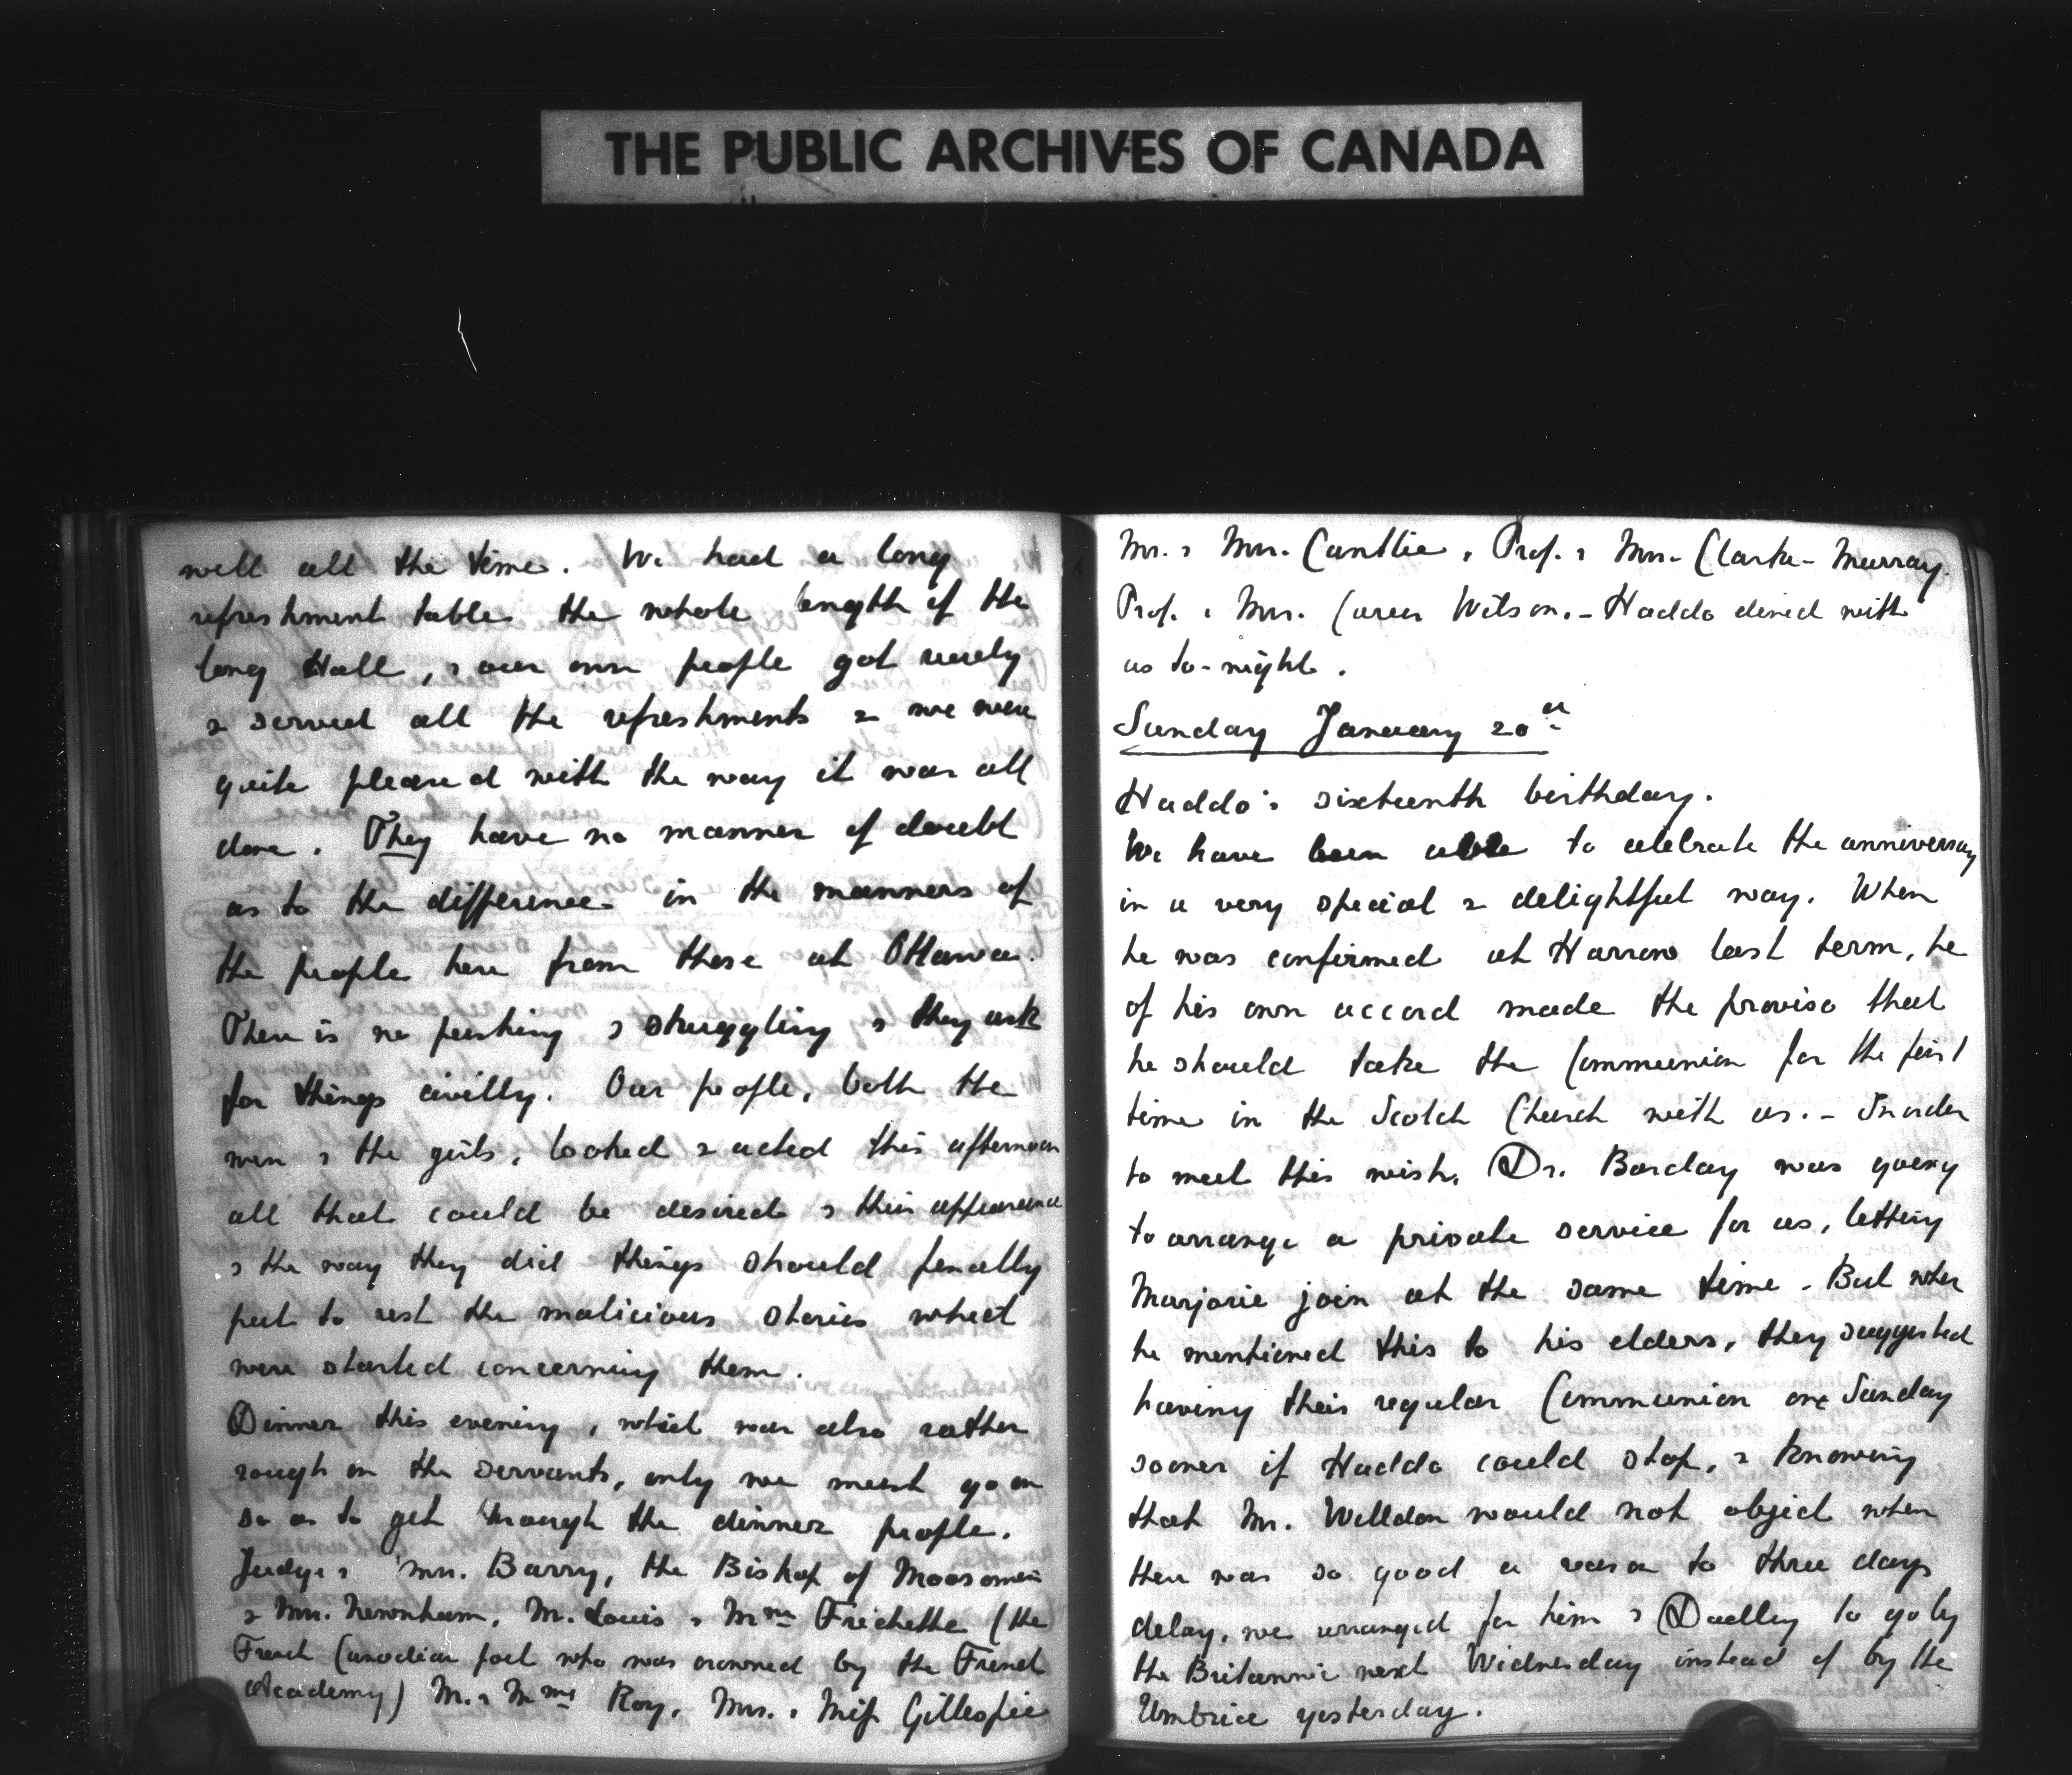 THE PUBLIC ARCHIVES OF CANADA
well all the time. We had a long
refreshment table the whole length of the
long Hall, & our own people got ready
& served all the refreshments & we were
quite pleased with the way it was all
done. They have no manner of doubt
as to the difference in the manners of
the people here from those at Ottawa.
There is no pushing & struggling & they ask
for things civilly. Our people, both the
men & the girls, looked & acted this afternoon
all that could be desired & their appearance
& the way they did things should finally
put to rest the malicious stories which
were started concerning them.
Dinner this evening, which was also rather
rough on the servants, only we must go on
so as to get through the dinner people.
Judge & Mrs. Barry, the Bishop of Moosomin
& Mrs. Newnham, M. Louis & Mme Frichette (the
French Canadian poet who was crowned by the French
Academy) M. & Mme Roy, Mrs. & Miss Gillespie
Mr. & Mrs. Cantlie, Prof. & Mrs. Clarke-Murray.
Prof. & Mrs. Carus Wilson. - Haddo dined with
us to-night.
Sunday January 20th
Haddo's sixteenth birthday.
We have been able to celebrate the anniversary
in a very special & delightful way. When
he was confirmed at Harrow last term, he
of his own accord made the proviso that
he should take the Communion for the first
time in the Scotch Church with us. - In order
to meet this wish, Dr. Barclay was going
to arrange a private service for us, letting
Marjorie join at the same time - But when
he mentioned this to his elders, they suggested
having their regular Communion one Sunday
sooner if Haddo could stop, & knowing
that Mr. Welldon would not object when
there was so good a reason to three days
delay, we arranged for him & Dudley to go by
the Britannic next Wednesday instead of by the
Umbria yesterday.